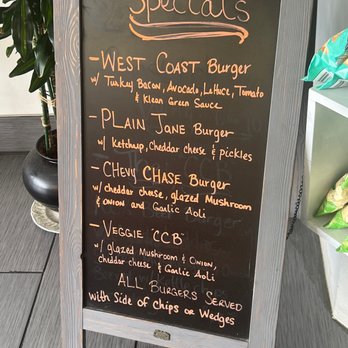 Specials
- WEST COAST Burger
w/ Turkey Bacon, Avocado, Lettuce, Tomato
& Klean Green Sauce
- PLAIN JANE Burger
w/ Ketchup, cheddar cheese & pickles
- CHEVY CHASE Burger
w/ cheddar cheese, glazed Mushroom
& Onion and Garlic Aoli
- VEGGIE "CCB"
w/ glazed Mushroom & Onion,
cheddar cheese & Garlic Aoli
ALL BURGERS SERVED
with Side of Chips or Wedges